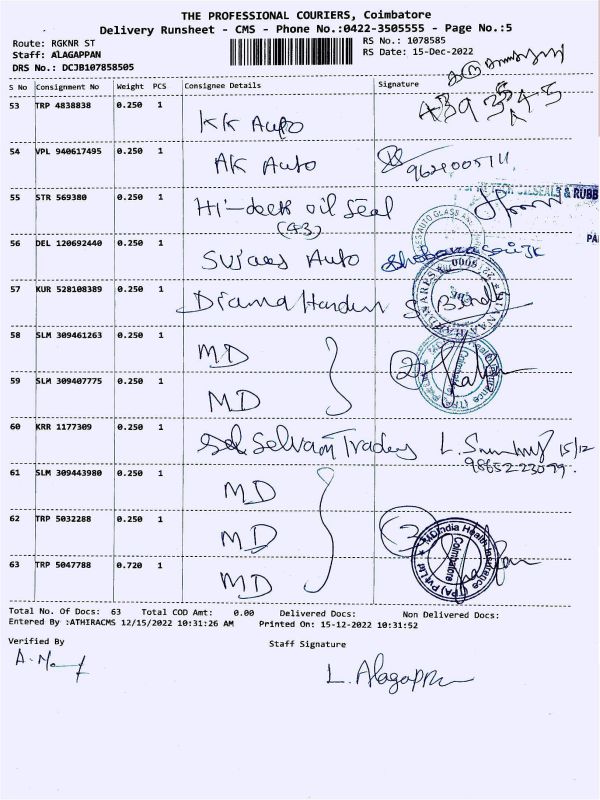 THE PROFESSIONAL COURIERS, Coimbatore
Delivery Runsheet - CMS - Phone No.:0422-3505555 - Page No.:5
Route: RGKNR ST
RS No.: 1078585
Staff: ALAGAPPAN
RS Date: 15-Dec-2022
DRS No.: DCJB107858505
S No Consignment No Weight PCS Consignee Details Signature
53 TRP 4838838 0.250 1 KK Auto
54 VPL 940617495 0.250 1 AK Auto
55 STR 569380 0.250 1 Hi-deck oil Seal
(43)
OILSEALS & RUBB
56 DEL 120692440 0.250 1 Auto
57 KUR 528108389 0.250 1 Diana
58 SLM 309461263 0.250 1 MD 2
59 SLM 309407775 0.250 1 MD
60 KRR 1177309 0.250 1 Selvam Traders L. 15/12
98652-23099.
61 SLM 309443980 0.250 1 MD
62 TRP 5032288 0.250 1 MD 3
MDIndia Health Insurance (TPA) Pvt Ltd
Coimbatore
63 TRP 5047788 0.720 1 MD
Total No. Of Docs: 63 Total COD Amt: 0.00 Delivered Docs: Non Delivered Docs:
Entered By :ATHIRACMS 12/15/2022 10:31:26 AM Printed On: 15-12-2022 10:31:52
Verified By Staff Signature
L. Alagappan